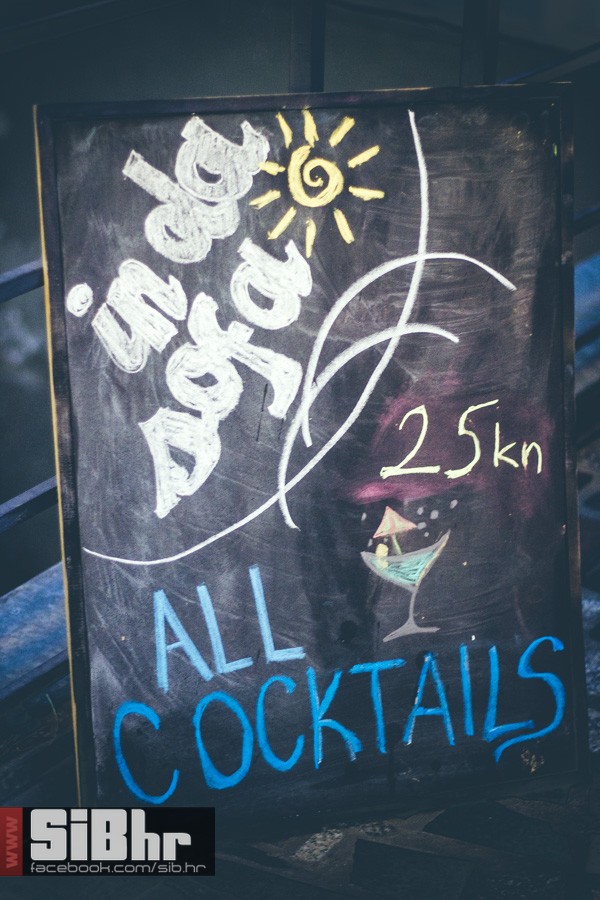 in da
Đoga
25kn
ALL
COCKTAILS
www
SiBhr
facebook.com/sib.hr